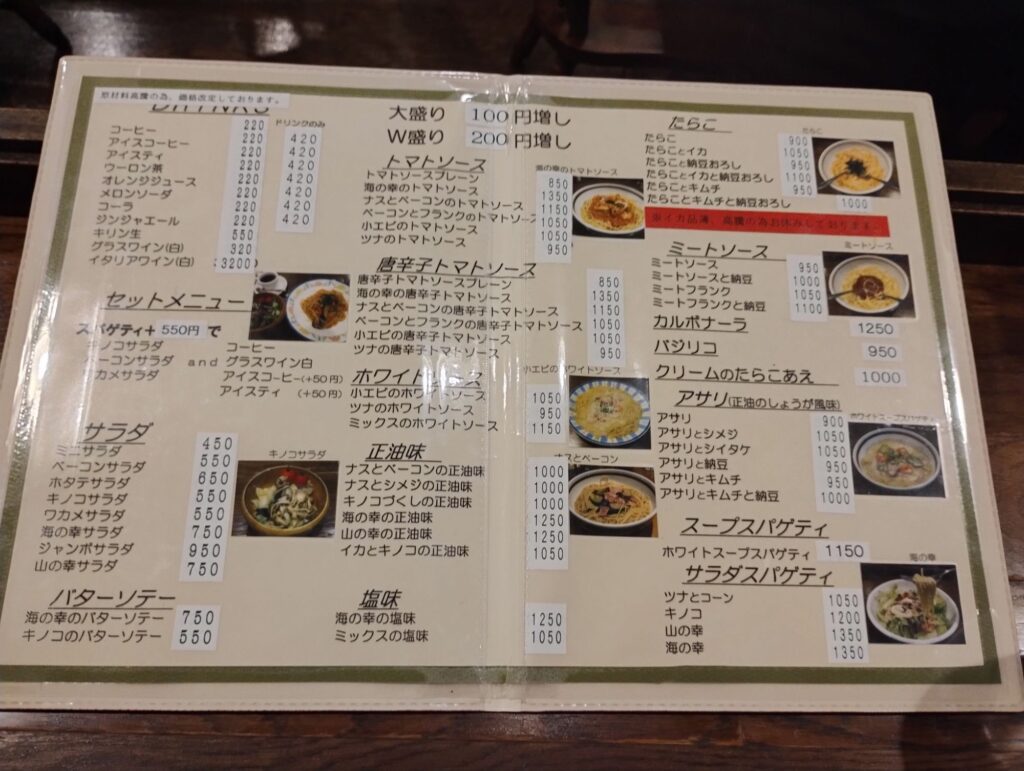 原材料高騰の為、価格改定しております。
DRINKS
ドリンクのみ
コーヒー 220 420
アイスコーヒー 220 420
アイスティ 220 420
ウーロン茶 220 420
オレンジジュース 220 420
メロンソーダ 220 420
コーラ 220 420
ジンジャエール 220 420
キリン生 550
グラスワイン(白) 320
イタリアワイン(白) 3200
セットメニュー
スパゲティ+ 550円 で
キノコサラダ コーヒー
ベーコンサラダ and グラスワイン白
ワカメサラダ アイスコーヒー(+50円)
アイスティ (+50円)
サラダ
ミニサラダ 450
ベーコンサラダ 550
ホタテサラダ 650
キノコサラダ 550
ワカメサラダ 550
海の幸サラダ 750
ジャンボサラダ 950
山の幸サラダ 750
キノコサラダ
バターソテー
海の幸のバターソテー 750
キノコのバターソテー 550
大盛り 100円増し
W盛り 200円増し
トマトソース
海の幸のトマトソース
トマトソースプレーン 850
海の幸のトマトソース 1350
ナスとベーコンのトマトソース 1150
ベーコンとフランクのトマトソース 1050
小エビのトマトソース 1050
ツナのトマトソース 950
唐辛子トマトソース
唐辛子トマトソースプレーン 850
海の幸の唐辛子トマトソース 1350
ナスとベーコンの唐辛子トマトソース 1150
ベーコンとフランクの唐辛子トマトソース 1050
小エビの唐辛子トマトソース 1050
ツナの唐辛子トマトソース 950
ホワイトソース
小エビのホワイトソース
小エビのホワイトソース 1050
ツナのホワイトソース 950
ミックスのホワイトソース 1150
正油味
ナスとベーコン
ナスとベーコンの正油味 1000
ナスとシメジの正油味 1000
キノコづくしの正油味 1000
海の幸の正油味 1250
山の幸の正油味 1250
イカとキノコの正油味 1050
塩味
海の幸の塩味 1250
ミックスの塩味 1050
たらこ
たらこ
たらこ 900
たらことイカ 1050
たらこと納豆おろし 950
たらことイカと納豆おろし 1050
たらことキムチ 950
たらことキムチと納豆おろし 1000
※イカ品薄、高騰の為お休みしております
ミートソース
ミートソース
ミートソース 900
ミートソースと納豆 1000
ミートフランク 1050
ミートフランクと納豆 1100
カルボナーラ 1250
バジリコ 950
クリームのたらこあえ 1000
アサリ(正油のしょうが風味)
ホワイトスープスパゲティ
アサリ 900
アサリとシメジ 1050
アサリとシイタケ 1050
アサリと納豆 950
アサリとキムチ 950
アサリとキムチと納豆 1000
スープスパゲティ
ホワイトスープスパゲティ 1150
サラダスパゲティ
海の幸
ツナとコーン 1050
キノコ 1200
山の幸 1350
海の幸 1350